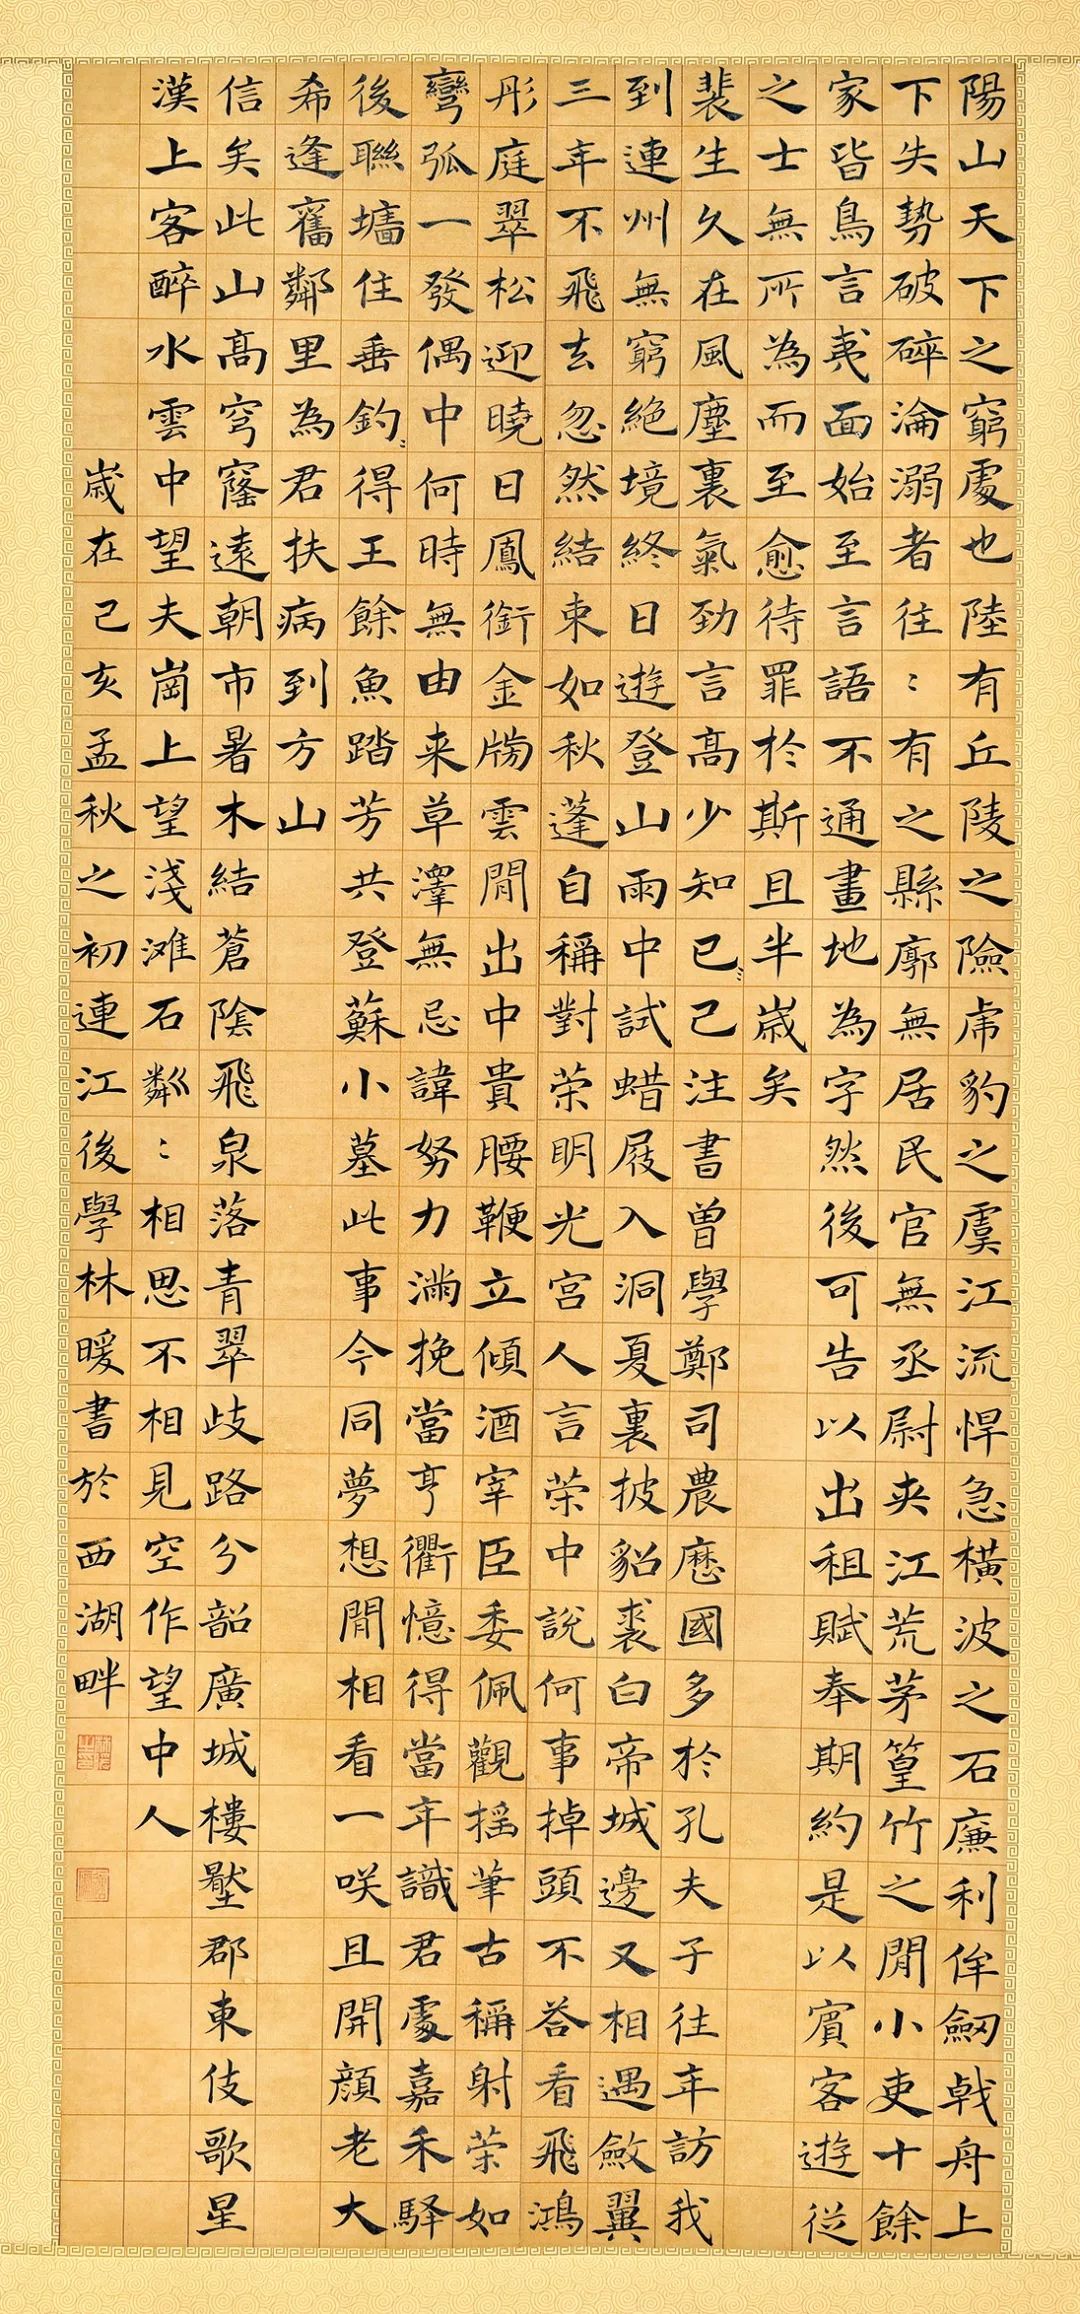 陽山天下之窮處也陸有丘陵之險虎豹之虞江流悍急橫波之石廉利侔劒戟舟上
下失勢破碎淪溺者往〻有之縣廓無居民官無丞尉夹江荒茅篁竹之閒小吏十餘
家皆鳥言夷面始至言語不通畫地為字然後可告以出租賦奉期約是以賓客遊從
之士無所為而至愈待罪於斯且半歲矣
裴生久在風塵裏氣勁言高少知已〻己注書曾學鄭司農歷國多於孔夫子往年訪我
到連州無窮絕境終日遊登山雨中試蜡屐入洞夏裏披貂裘白帝城邊又相遇斂翼
三年不飛去忽然結束如秋蓬自稱對荣明光宮人言荣中說何事掉頭不荅看飛鴻
彤庭翠松迎曉日鳳銜金牓雲閒出中貴腰鞭立傾酒宰臣委佩觀搖筆古稱射荣如
彎弧一發偶中何時無由来草澤無忌諱努力滿挽當亨衢憶得當年識君處嘉禾驛
後聯墻住垂釣〻得王餘魚踏芳共登蘇小墓此事今同夢想閒相看一咲且開顏老大
希逢舊鄰里為君扶病到方山
信矣此山高穹窿遠朝市暑木結蒼陰飛泉落青翠歧路分韶廣城樓壓郡東伎歌星
漢上客醉水雲中望夫崗上望淺滩石粼〻相思不相見空作望中人
歲在己亥孟秋之初連江後學林暖書於西湖畔